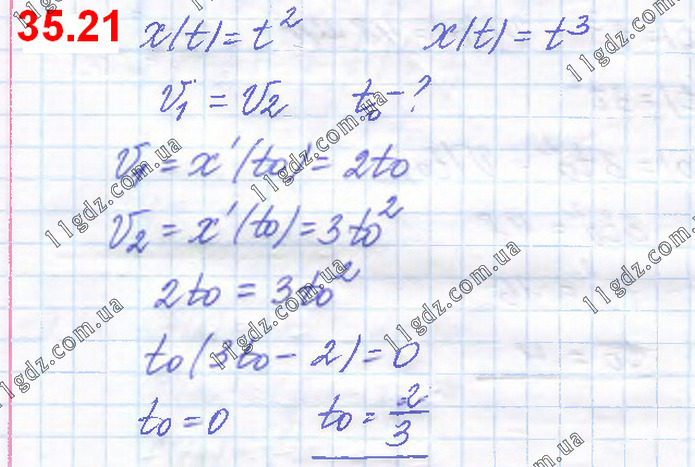 35.21 x(t) = t² x(t) = t³
v₁ = v₂ t₀ - ?
v₁ = x'(t₀) = 2t₀
v₂ = x'(t₀) = 3t₀²
2t₀ = 3t₀²
t₀(3t₀ - 2) = 0
t₀ = 0 t₀ = 2/3
11gdz.com.ua
11gdz.com.ua
11gdz.com.ua
11gdz.com.ua
11gdz.com.ua
11gdz.com.ua
11gdz.com.ua
11gdz.com.ua
11gdz.com.ua